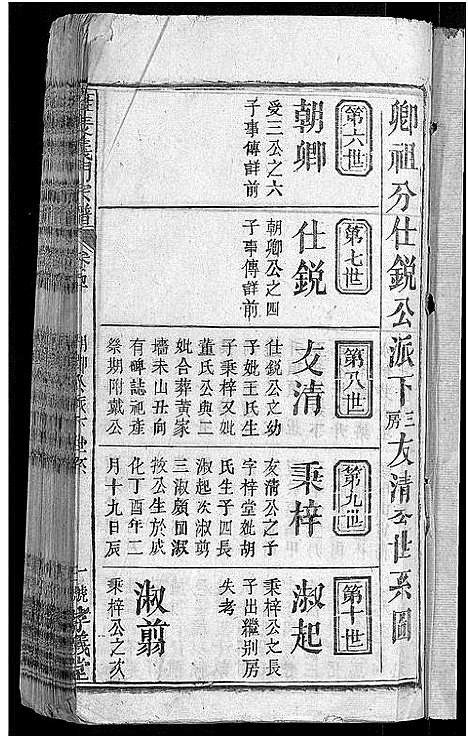 卿祖分仕銳公派下三房友清公世系圖
第六世
朝卿
愛三公之六
子事傳詳前
第七世
仕銳
朝卿公之四
子事傳詳前
第八世
友清
仕銳公文幼
子妣王氏生
子秉梓又妣
董氏公與二
妣合葬黄家
墻未山丑向
有碑誌祀產
祭期附戴公
第九世
秉梓
友清公之子
字梓堂妣胡
氏生子四長
淑起次淑剪
三淑顧四淑
公生於成
化丁酉年二
月十九日辰
第十世
淑起
秉梓公文長
子出繼别房
失考
淑剪
秉梓公之次
義門宗譜
卷四
朝卿公派下世系
一號 孝義堂